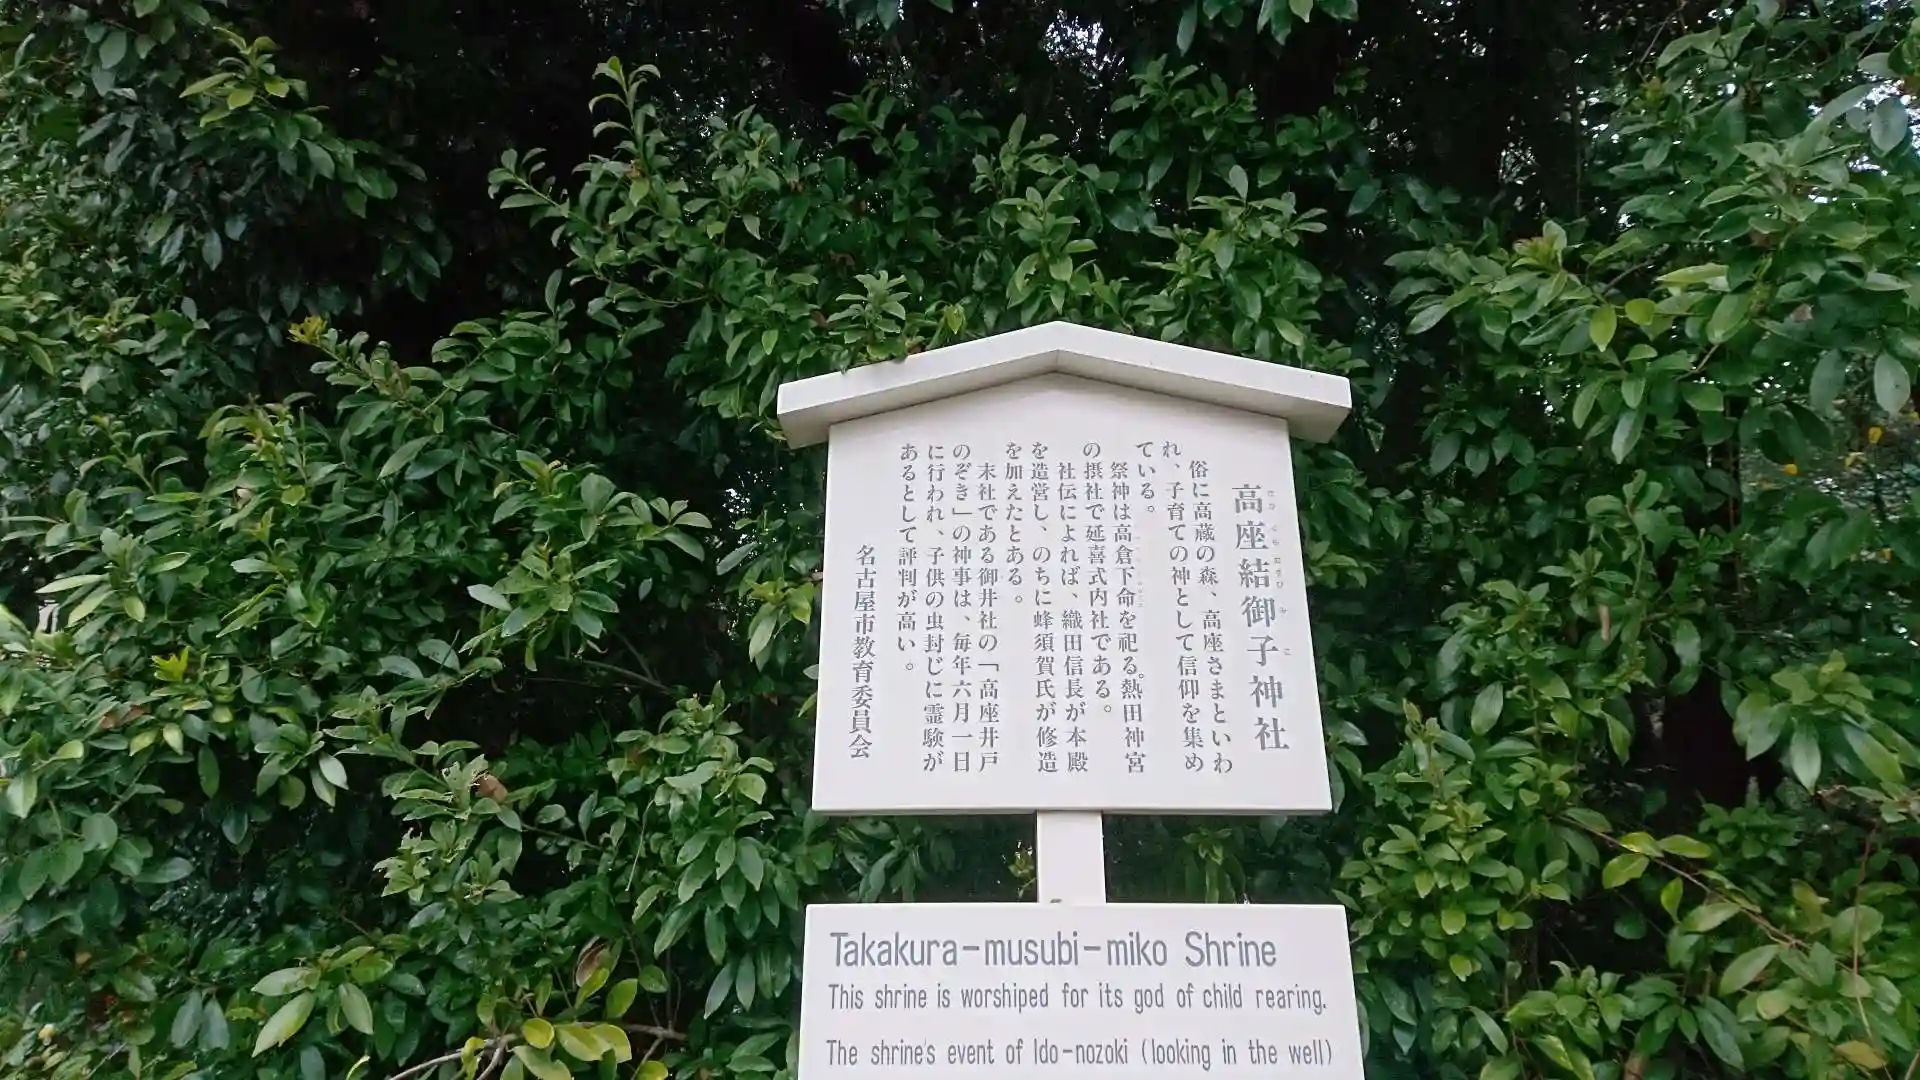 高座結御子神社
たかくらむすびみこ
俗に高蔵の森、高座さまといわ
れ、子育ての神として信仰を集め
ている。
祭神は高倉下命を祀る。熱田神宮
の摂社で延喜式内社である。
社伝によれば、織田信長が本殿
を造営し、のちに蜂須賀氏が修造
を加えたとある。
末社である御井社の「高座井戸
のぞき」の神事は、毎年六月一日
に行われ、子供の虫封じに霊験が
あるとして評判が高い。
名古屋市教育委員会
Takakura-musubi-miko Shrine
This shrine is worshiped for its god of child rearing.
The shrine's event of Ido-nozoki (looking in the well)